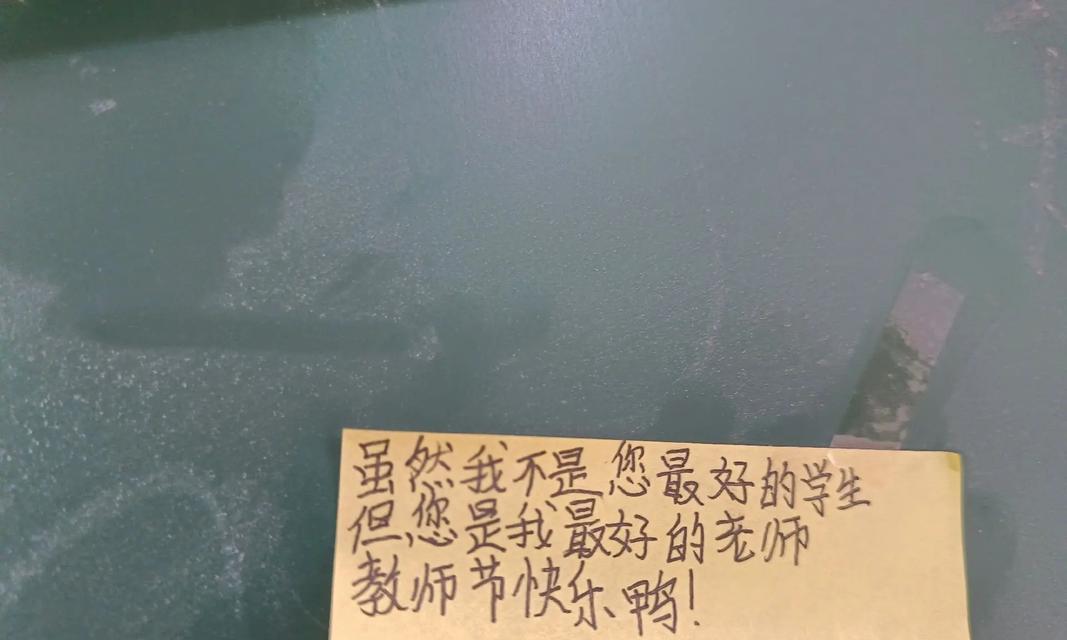 虽然我不是您最好的学生
但您是我最好的老师
教师节快乐鸭!